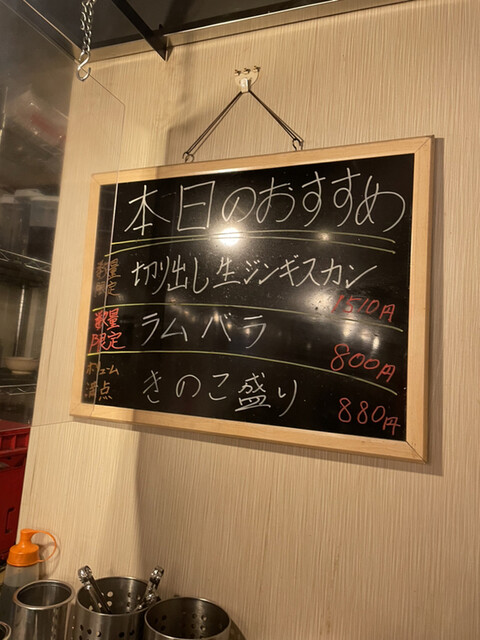 本日のおすすめ
数量限定
切り出し生ジンギスカン
1510円
数量限定
ラムバラ
800円
ボリューム満点
きのこ盛り
880円